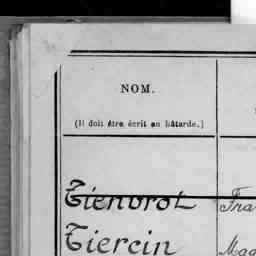 NOM.
(Il doit être écrit en bâtarde.)
Fra
Tiercin
Mad